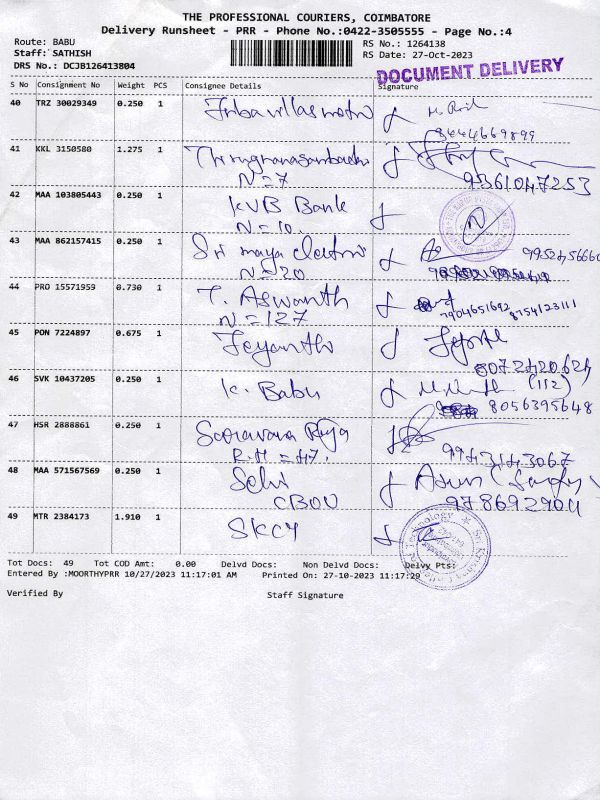 THE PROFESSIONAL COURIERS, COIMBATORE
Delivery Runsheet - PRR - Phone No.:0422-3505555 - Page No.:4
Route: BABU
RS No.: 1264138
Staff: SATHISH
RS Date: 27-Oct-2023
DRS No.: DCJB126413804
DOCUMENT DELIVERY
S No Consignment No Weight PCS Consignee Details Signature
40 TRZ 30029349 0.250 1
9444669899
41 KKL 3150580 1.275 1 Thirugnanasambandam
N=7
9361047253
42 MAA 103805443 0.250 1 KVB Bank
N=10.
43 MAA 862157415 0.250 1 Sri maya
N=20
44 PRO 15571959 0.730 1 T. Aswanth
N=127
7904651692 8754123111
45 PON 7224897 0.675 1 Jeyanthi
46 SVK 10437205 0.250 1 K. Babu (112)
8056395648
47 HSR 2888861 0.250 1 Saravana Raja
R.H=47.
9943143067
48 MAA 571567569 0.250 1 Selvi
CBOU
49 MTR 2384173 1.910 1 SKCY
Tot Docs: 49 Tot COD Amt: 0.00 Delvd Docs: Non Delvd Docs: Delvy Pts:
Entered By :MOORTHYPRR 10/27/2023 11:17:01 AM Printed On: 27-10-2023 11:17:29
Verified By Staff Signature